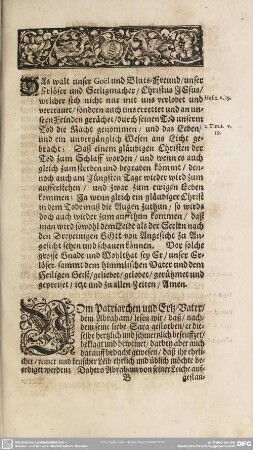 DAs walt unser Goël und Bluts-Freund / unser
Erlöser und Seligmacher / Christus JEsus /
welcher sich nicht nur mit uns verlobet und
vertrauet / sondern auch uns errettet und an un-
sern Feinden gerächet / durch seinen Tod unserm
Tod die Macht genommen / und das Leben /
und ein unvergänglich Wesen ans Licht ge-
bracht: Daß einem gläubigen Christen der
Tod zum Schlaff worden / und wenn es auch
gleich zum sterben und begraben kömmt / den-
noch auch am Jüngsten Tage wieder wird zum
aufferstehen / und zwar zum ewigen Leben
kommen: Ja wenn gleich ein gläubiger Christ
in dem Tode muß die Augen zuthun / so wirds
doch auch wieder zum auffthun kommen / daß
man wird sowohl dem Leibe als der Seelen nach
den Dreyeinigen GOtt von Angesicht zu An-
gesicht sehen und schauen können. Vor solche
grosse Gnade und Wohlthat sey Er / unser Er-
löser / sammt dem himmlischen Vater und dem
Heiligen Geist / geliebet / gelobet / gerühmet und
gepreiset / itzt und zu allen Zeiten / Amen.
Hos. 2. v. 19.
2. Tim. 1. v.
10.
VOm Patriarchen und Ertz-Vater /
dem Abraham / lesen wir / daß / nach-
dem seine liebe Sara gestorben / er die-
selbe hertzlich und schmertzlich beseuffzet /
beklaget und beweinet / darbey aber auch
darauff bedacht gewesen / daß ihr ehrli-
cher / reiner und keuscher Leib ehrlich und üblich möchte be-
erdiget werden; Dahero Abraham von seiner Leiche auff-
B
gestan-